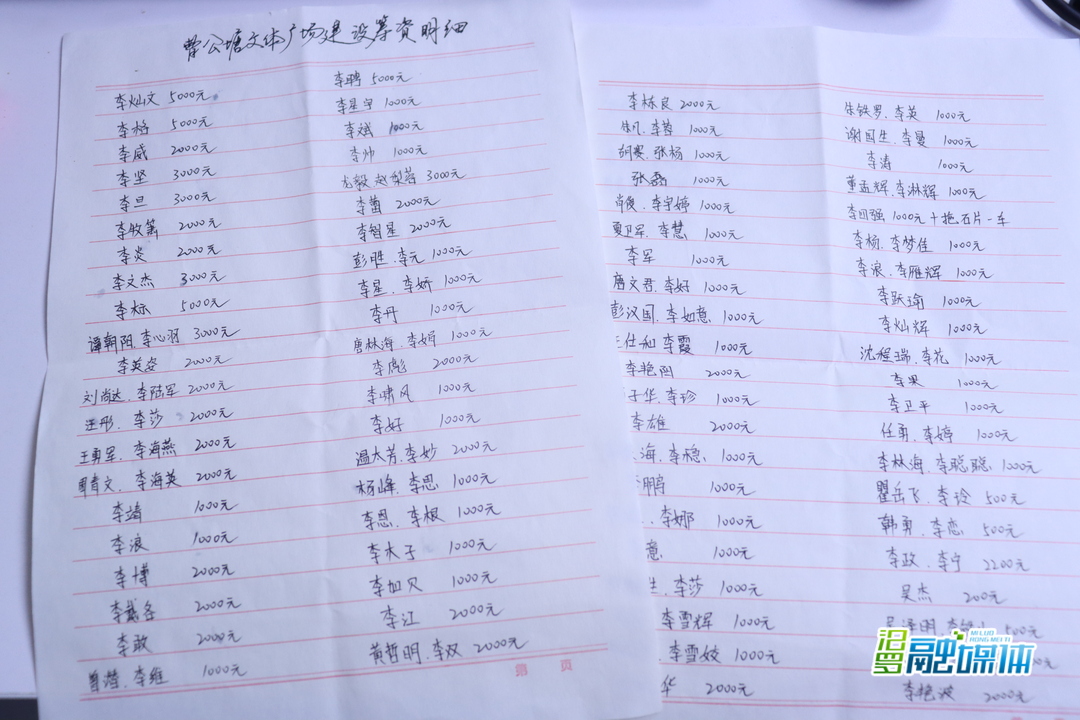 曹公塘文体广场建设筹资明细
李灿文 5000元
李格 5000元
李威 2000元
李坚 3000元
李旦 3000元
李牧箫 2000元
李炎 2000元
李文杰 3000元
李标 5000元
谭朝阳、李心羽 3000元
李英姿 2000元
刘尚达、李陆军 2000元
汪彤、李莎 2000元
王勇军、李海燕 2000元
李海英 2000元
李靖 1000元
李浪 1000元
李博 2000元
2000元
李敢 2000元
曾潜、李维 1000元
李聘 5000元
李星宇 1000元
李斌 1000元
李帅 1000元
龙毅 赵梨蓉 3000元
李茜 2000元
李智星 2000元
彭胜、李元 1000元
李星、李娇 1000元
李丹 1000元
唐林海、李娟 1000元
李彪 2000元
李啸风 1000元
李好 1000元
温大芳、李妙 2000元
杨峰、李思 1000元
李恩、李根 1000元
李木子 1000元
李加贝 1000元
李江 2000元
黄哲明、李双 2000元
第 页
李栋良 2000元
朱凡、李蓉 1000元
胡赛、张杨 1000元
张磊 1000元
肖俊、李宇婷 1000元
夏卫军、李慧 1000元
李军 1000元
唐文君、李好 1000元
彭汉国、李如意 1000元
王仕和 李霞 1000元
李艳阳 2000元
子华、李珍 1000元
李雄 2000元
海、李稳 1000元
鹏 1000元
李娜 1000元
意 1000元
生、李莎 1000元
李雪辉 1000元
李雪姣 1000元
华 2000元
朱铁罗、李英 1000元
谢国生、李曼 1000元
李涛 1000元
董孟辉、李淋辉 1000元
李回强 1000元+拖石片一车
李杨、李梦佳 1000元
李浪、李雁辉 1000元
李跃瑜 1000元
李灿辉 1000元
沈程瑞、李花 1000元
李果 1000元
李卫平 1000元
任勇、李婷 1000元
李林海、李聪聪 1000元
瞿岳飞、李玲 500元
韩勇、李恋 500元
李政、李宁 2200元
吴杰 200元
李艳波 2000元
汨罗融媒体
MI LUO RONG MEI TI